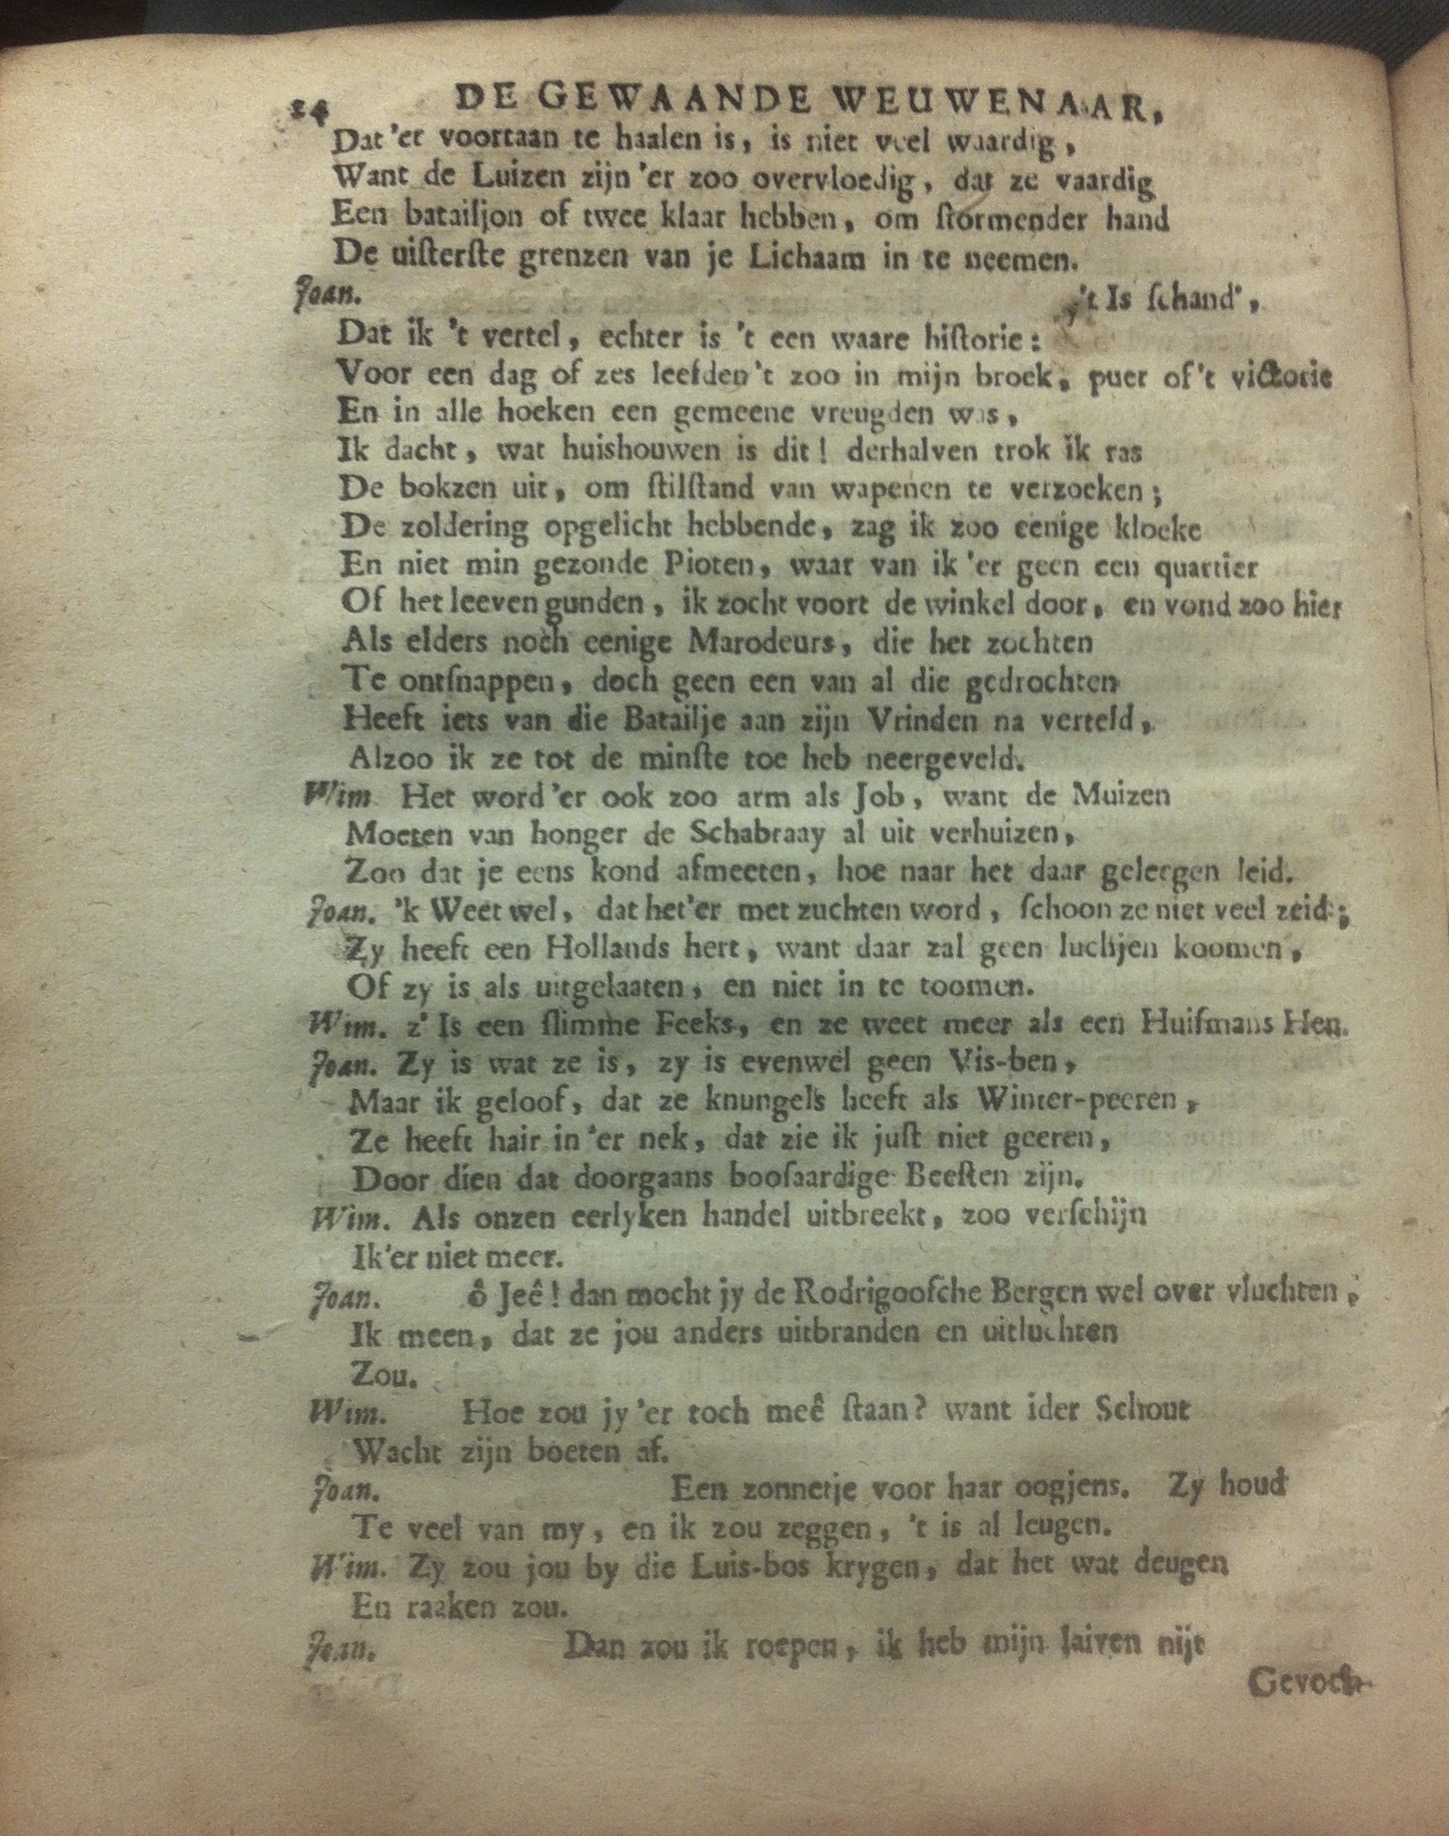 24 DE GEWAANDE WEUWENAAR,
Dat 'er voortaan te haalen is, is niet veel waardig,
Want de Luizen zijn 'er zoo overvloedig, dat ze vaardig
Een batailjon of twee klaar hebben, om ſtormender hand
De uiſterſte grenzen van je Lichaam in te neemen.
Joan. 't Is ſchand',
Dat ik 't vertel, echter is 't een waare hiſtorie:
Voor een dag of zes leefden 't zoo in mijn broek, puer of 't victorie
En in alle hoeken een gemeene vreugden was,
Ik dacht, wat huishouwen is dit! derhalven trok ik ras
De bokzen uit, om ſtilſtand van wapenen te verzoeken;
De zoldering opgelicht hebbende, zag ik zoo eenige kloeke
En niet min gezonde Pioten, waar van ik 'er geen een quartier
Of het leeven gunden, ik zocht voort de winkel door, en vond zoo hier
Als elders noch eenige Marodeurs, die het zochten
Te ontſnappen, doch geen een van al die gedrochten
Heeft iets van die Batailje aan zijn Vrinden na verteld,
Alzoo ik ze tot de minſte toe heb neergeveld.
Wim Het word 'er ook zoo arm als Job, want de Muizen
Moeten van honger de Schabraay al uit verhuizen,
Zoo dat je eens kond afmeeten, hoe naar het daar geleegen leid.
Joan. 'k Weet wel, dat het 'er met zuchten word, ſchoon ze niet veel zeid;
Zy heeft een Hollands hert, want daar zal geen luchjen koomen,
Of zy is als uitgelaaten, en niet in te toomen.
Wim. z' Is een ſlimme Feeks, en ze weet meer als een Huiſmans Hen.
Joan. Zy is wat ze is, zy is evenwel geen Vis-ben,
Maar ik geloof, dat ze knungels heeft als Winter-peeren,
Ze heeft hair in 'er nek, dat zie ik juſt niet geeren,
Door dien dat doorgaans booſaardige Beeſten zijn.
Wim. Als onzen eerlyken handel uitbreekt, zoo verſchijn
Ik 'er niet meer.
Joan. ô Jeê! dan mocht jy de Rodrigooſche Bergen wel over vluchten,
Ik meen, dat ze jou anders uitbranden en uitluchten
Zou.
Wim. Hoe zou jy 'er toch meê ſtaan? want ider Schout
Wacht zijn boeten af.
Joan. Een zonnetje voor haar oogjens. Zy houd
Te veel van my, en ik zou zeggen, 't is al leugen.
Wim. Zy zou jou by die Luis-bos krygen, dat het wat deugen
En raaken zou.
Joan. Dan zou ik roepen, ik heb mijn laiven nijt
Gevoch-